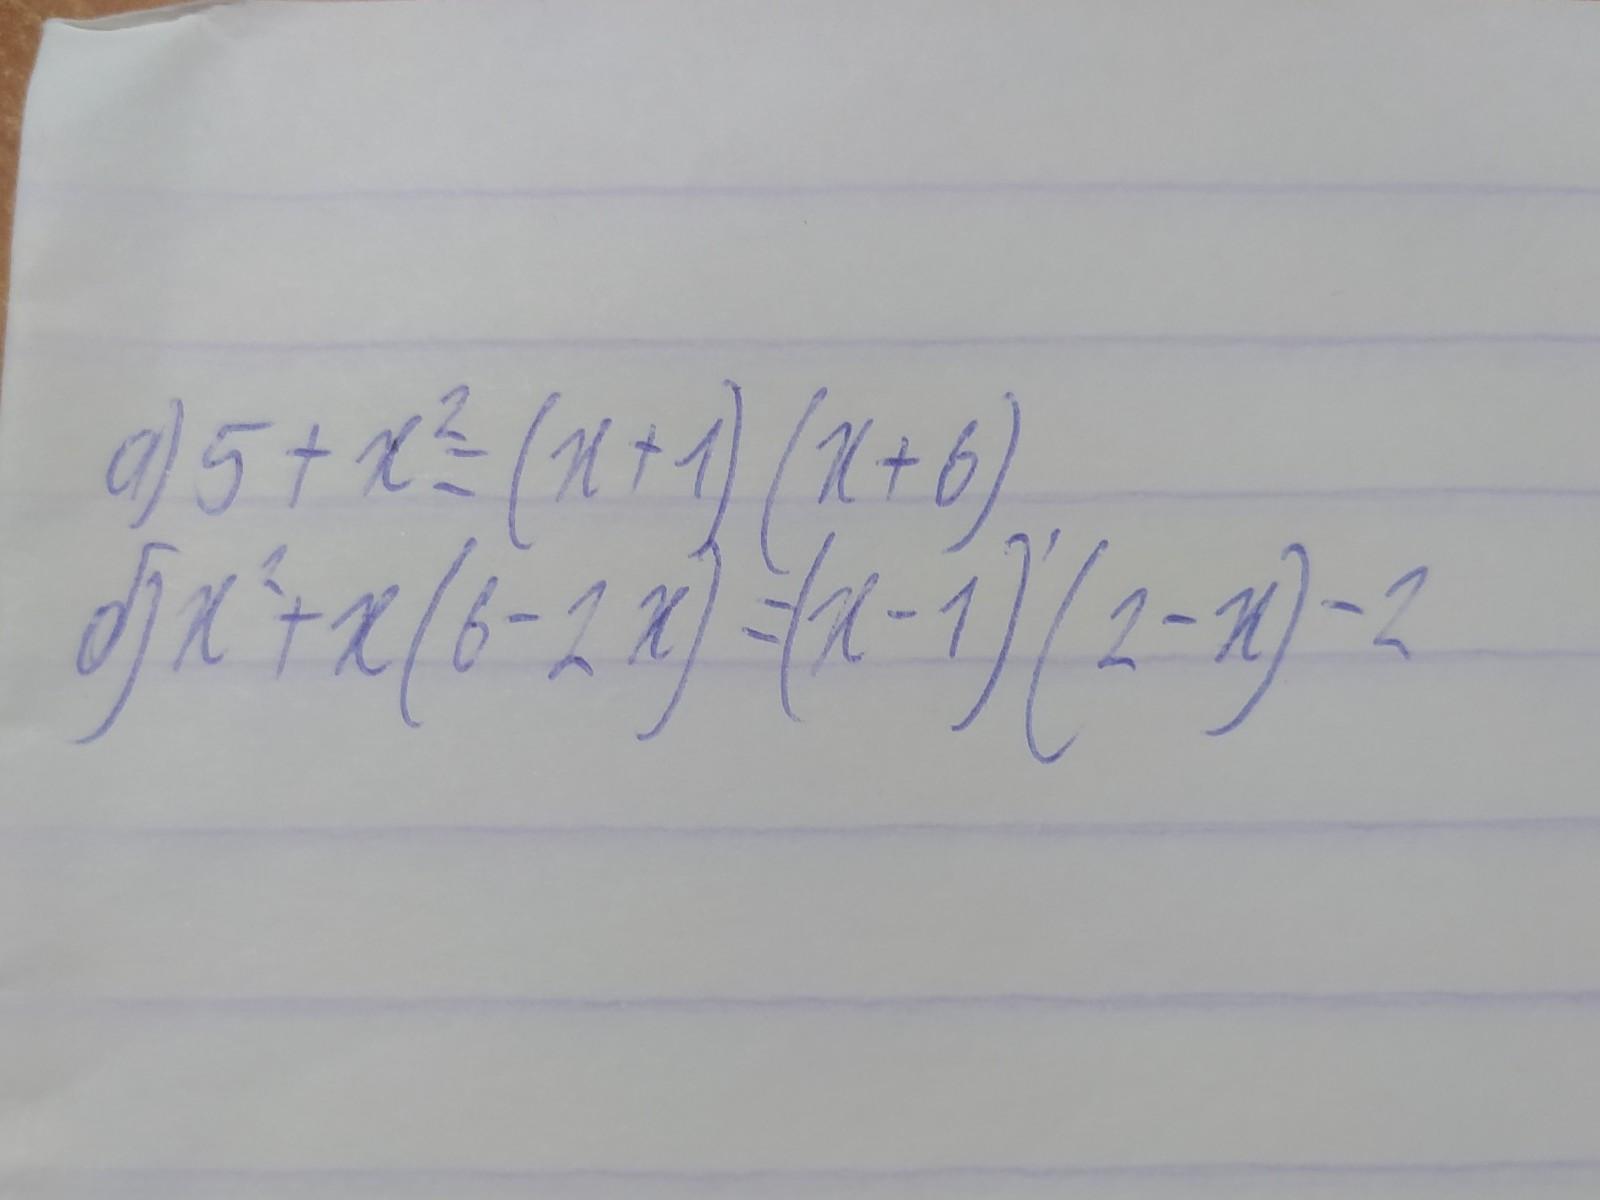 а) 5 + x² = (x + 1) (x + 6)
б) x² + x (6 - 2x) = (x - 1) (2 - x) - 2